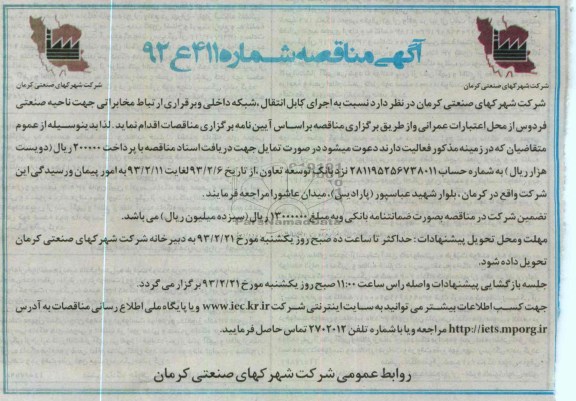 آگهی مناقصه شماره ۴۱۱ع۹۲
شرکت شهرکهای صنعتی کرمان
شرکت شهرکهای صنعتی کرمان
شرکت شهرکهای صنعتی کرمان در نظر دارد نسبت به اجرای کابل انتقال ،شبکه داخلی وبرقراری ارتباط مخابراتی جهت ناحیه صنعتی
فردوس از محل اعتبارات عمرانی واز طریق برگزاری مناقصه براساس آیین نامه برگزاری مناقصات اقدام نماید .لذا بدینوسیله از عموم
متقاضیان که در زمینه مذکور فعالیت دارند دعوت میشود در صورت تمایل جهت دریافت اسناد مناقصه با پرداخت ۲۰۰۰۰۰ ریال (دویست
هزار ریال ) به شماره حساب ۲۸۱۱۹۵۲۵۶۷۳۸۰۱۱ نزد بانک توسعه تعاون ،از تاریخ ۹۳/۲/۶ لغایت ۹۳/۲/۱۱ به امور پیمان ورسیدگی این
شرکت واقع در کرمان ، بلوار شهید عباسپور (پارادیس)، میدان عاشورا مراجعه فرمایند.
تضمین شرکت در مناقصه بصورت ضمانتنامه بانکی وبه مبلغ ۱۳۰۰۰۰۰۰ ریال (سیزده میلیون ریال ) می باشد.
مهلت ومحل تحویل پیشنهادات : حداکثر تا ساعت ده صبح روز یکشنبه مورخ ۹۳/۲/۲۱ به دبیرخانه شرکت شهرکهای صنعتی کرمان
تحویل داده شود.
جلسه بازگشایی پیشنهادات واصله راس ساعت ۱۱:۰۰ صبح روز یکشنبه مورخ ۹۳/۲/۲۱ برگزار می گردد.
جهت کسب اطلاعات بیشتر می توانید به سایت اینترنتی شرکت www.iec.kr.ir ویا پایگاه ملی اطلاع رسانی مناقصات به آدرس
http://iets.mporg.ir مراجعه ویا با شماره تلفن ۲۷۰۲۰۱۲ تماس حاصل فرمایید.
روابط عمومی شرکت شهرکهای صنعتی کرمان